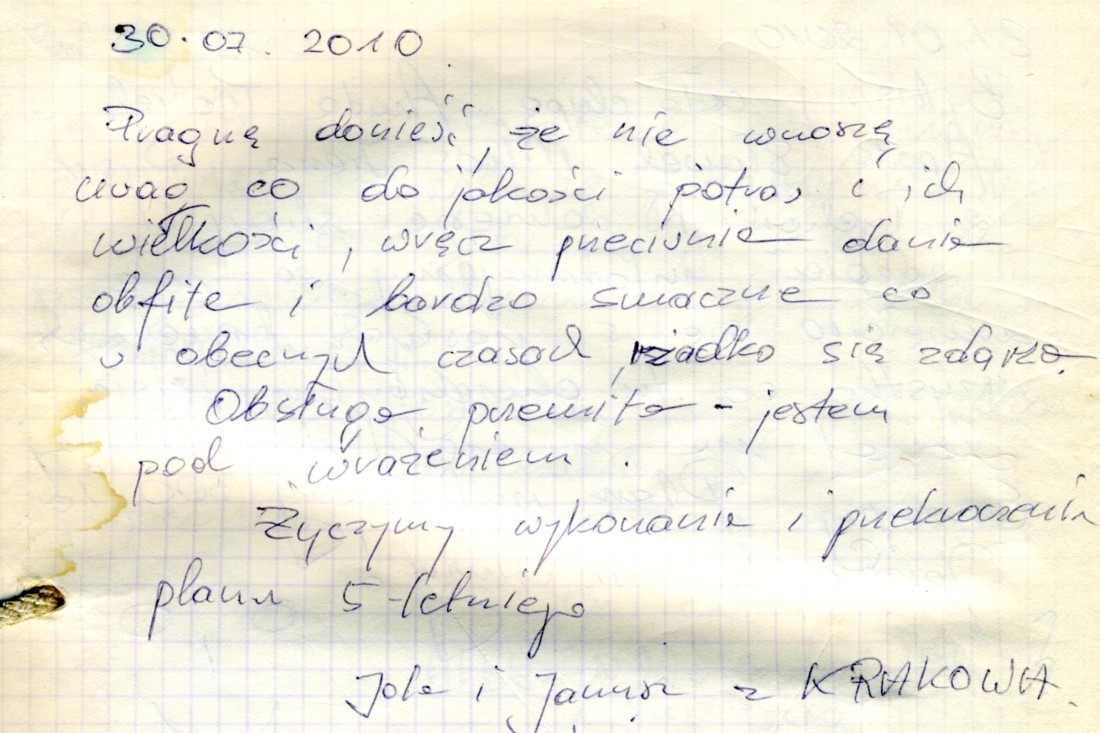 30.07.2010
Pragnę donieść, że nie wnoszę
uwag co do jakości potraw i ich
wielkości, wręcz przeciwnie dania
obfite i bardzo smaczne co
w obecnych czasach rzadko się zdarza.
Obsługa przemiła - jestem
pod wrażeniem.
Życzymy wykonania i przekroczenia
planu 5-letniego
Jola i Janusz z KRAKOWA.